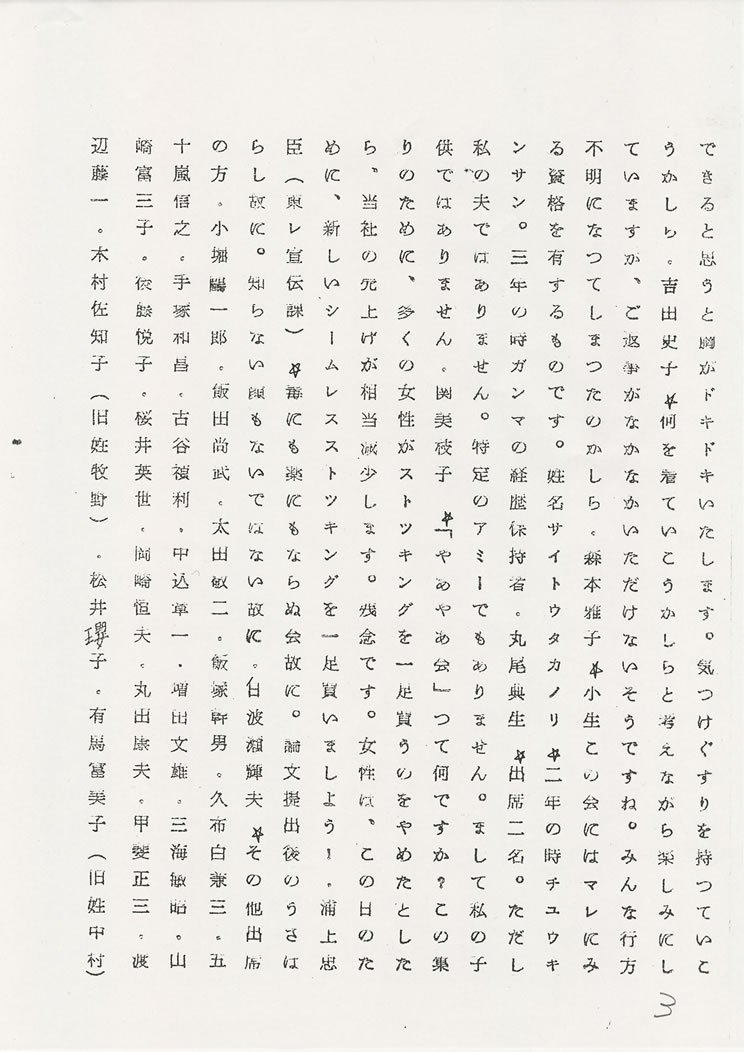 できると思うと胸がドキドキいたします。気つけぐすりを持つていこ
うかしら。吉田史子 ☆何を着ていこうかしらと考えながら楽しみにし
ていますが、ご返事がなかなかいただけないそうですね。みんな行方
不明になつてしまつたのかしら。森本雅子 ☆小生この会にはマレにみ
る資格を有するものです。姓名サイトウタカノリ ☆二年の時チユウキ
ンサン。三年の時ガンマの経歴保持者。丸尾典生 ☆出席二名。ただし
私の夫ではありません。特定のアミーでもありません。まして私の子
供ではありません。関美枝子 ☆『やあやあ会』つて何ですか？この集
りのために、多くの女性がストツキングを一足買うのをやめたとした
ら、当社の売上げが相当減少します。残念です。女性は、この日のた
めに、新しいシームレスストツキングを一足買いましよう！。浦上忠
臣（東レ宣伝課）☆毒にも薬にもならぬ会故に。論文提出後のうさは
らし故に。知らない顔もないではない故に。白波瀬輝夫 ☆その他出席
の方。小堀鷗一郎。飯田尚武。太田敏二。飯塚幹男。久布白兼三。五
十嵐信之。手塚和昌。古谷禎利。中込章一・増田文雄。三海敏昭。山
崎富三子。後藤悦子。桜井英世。岡崎恒夫。丸田康夫。甲斐正三。渡
辺藤一。木村佐知子（旧姓牧野）。松井瓔子。有馬富美子（旧姓中村）
3